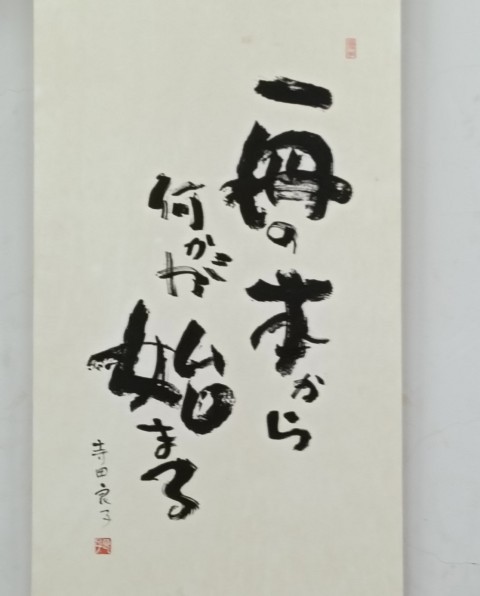 一冊の本から
何かが始まる
寺田良子